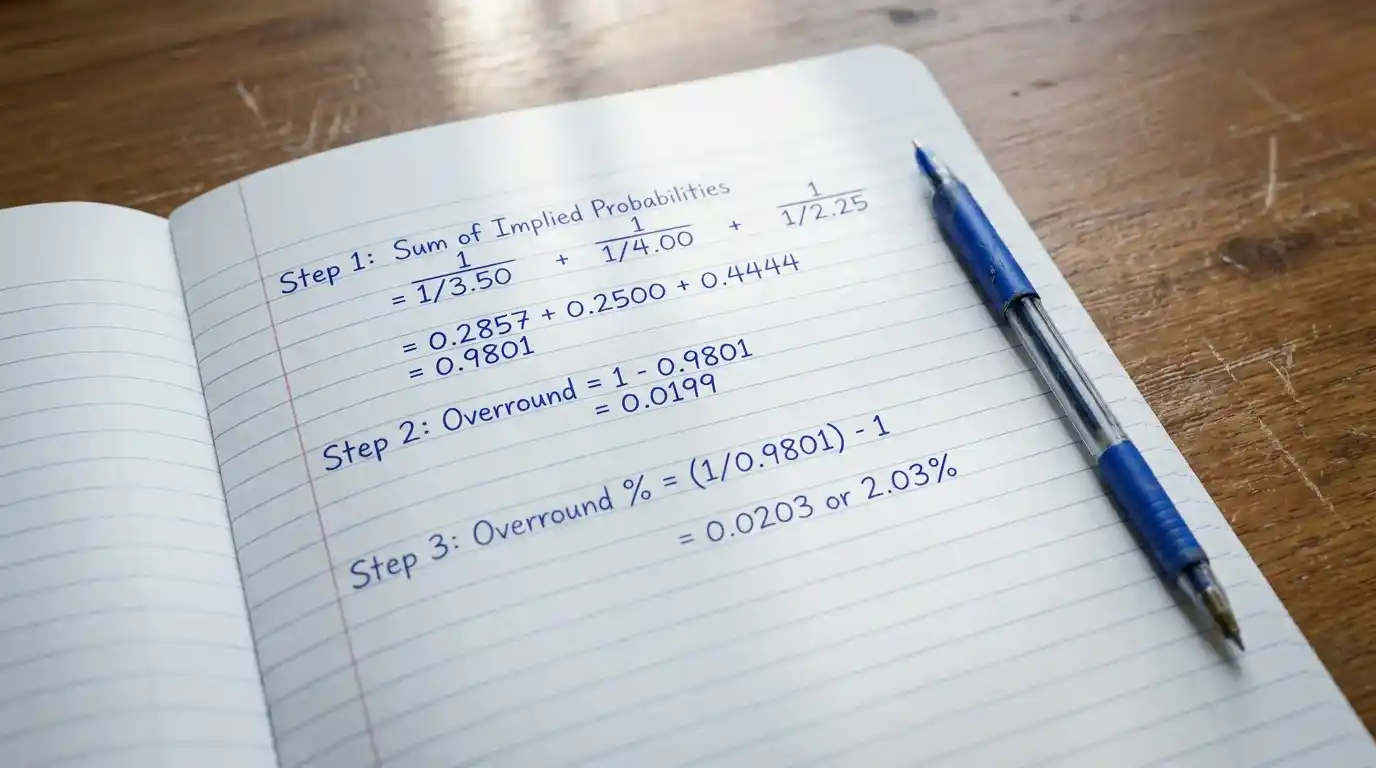 Step 1: Sum of Implied Probabilities
= 1/1/3.50 + 1/1/4.00 + 1/1/2.25
= 0.2857 + 0.2500 + 0.4444
= 0.9801
Step 2: Overround = 1 - 0.9801
= 0.0199
Step 3: Overround % = (1/0.9801) - 1
= 0.0203 or 2.03%